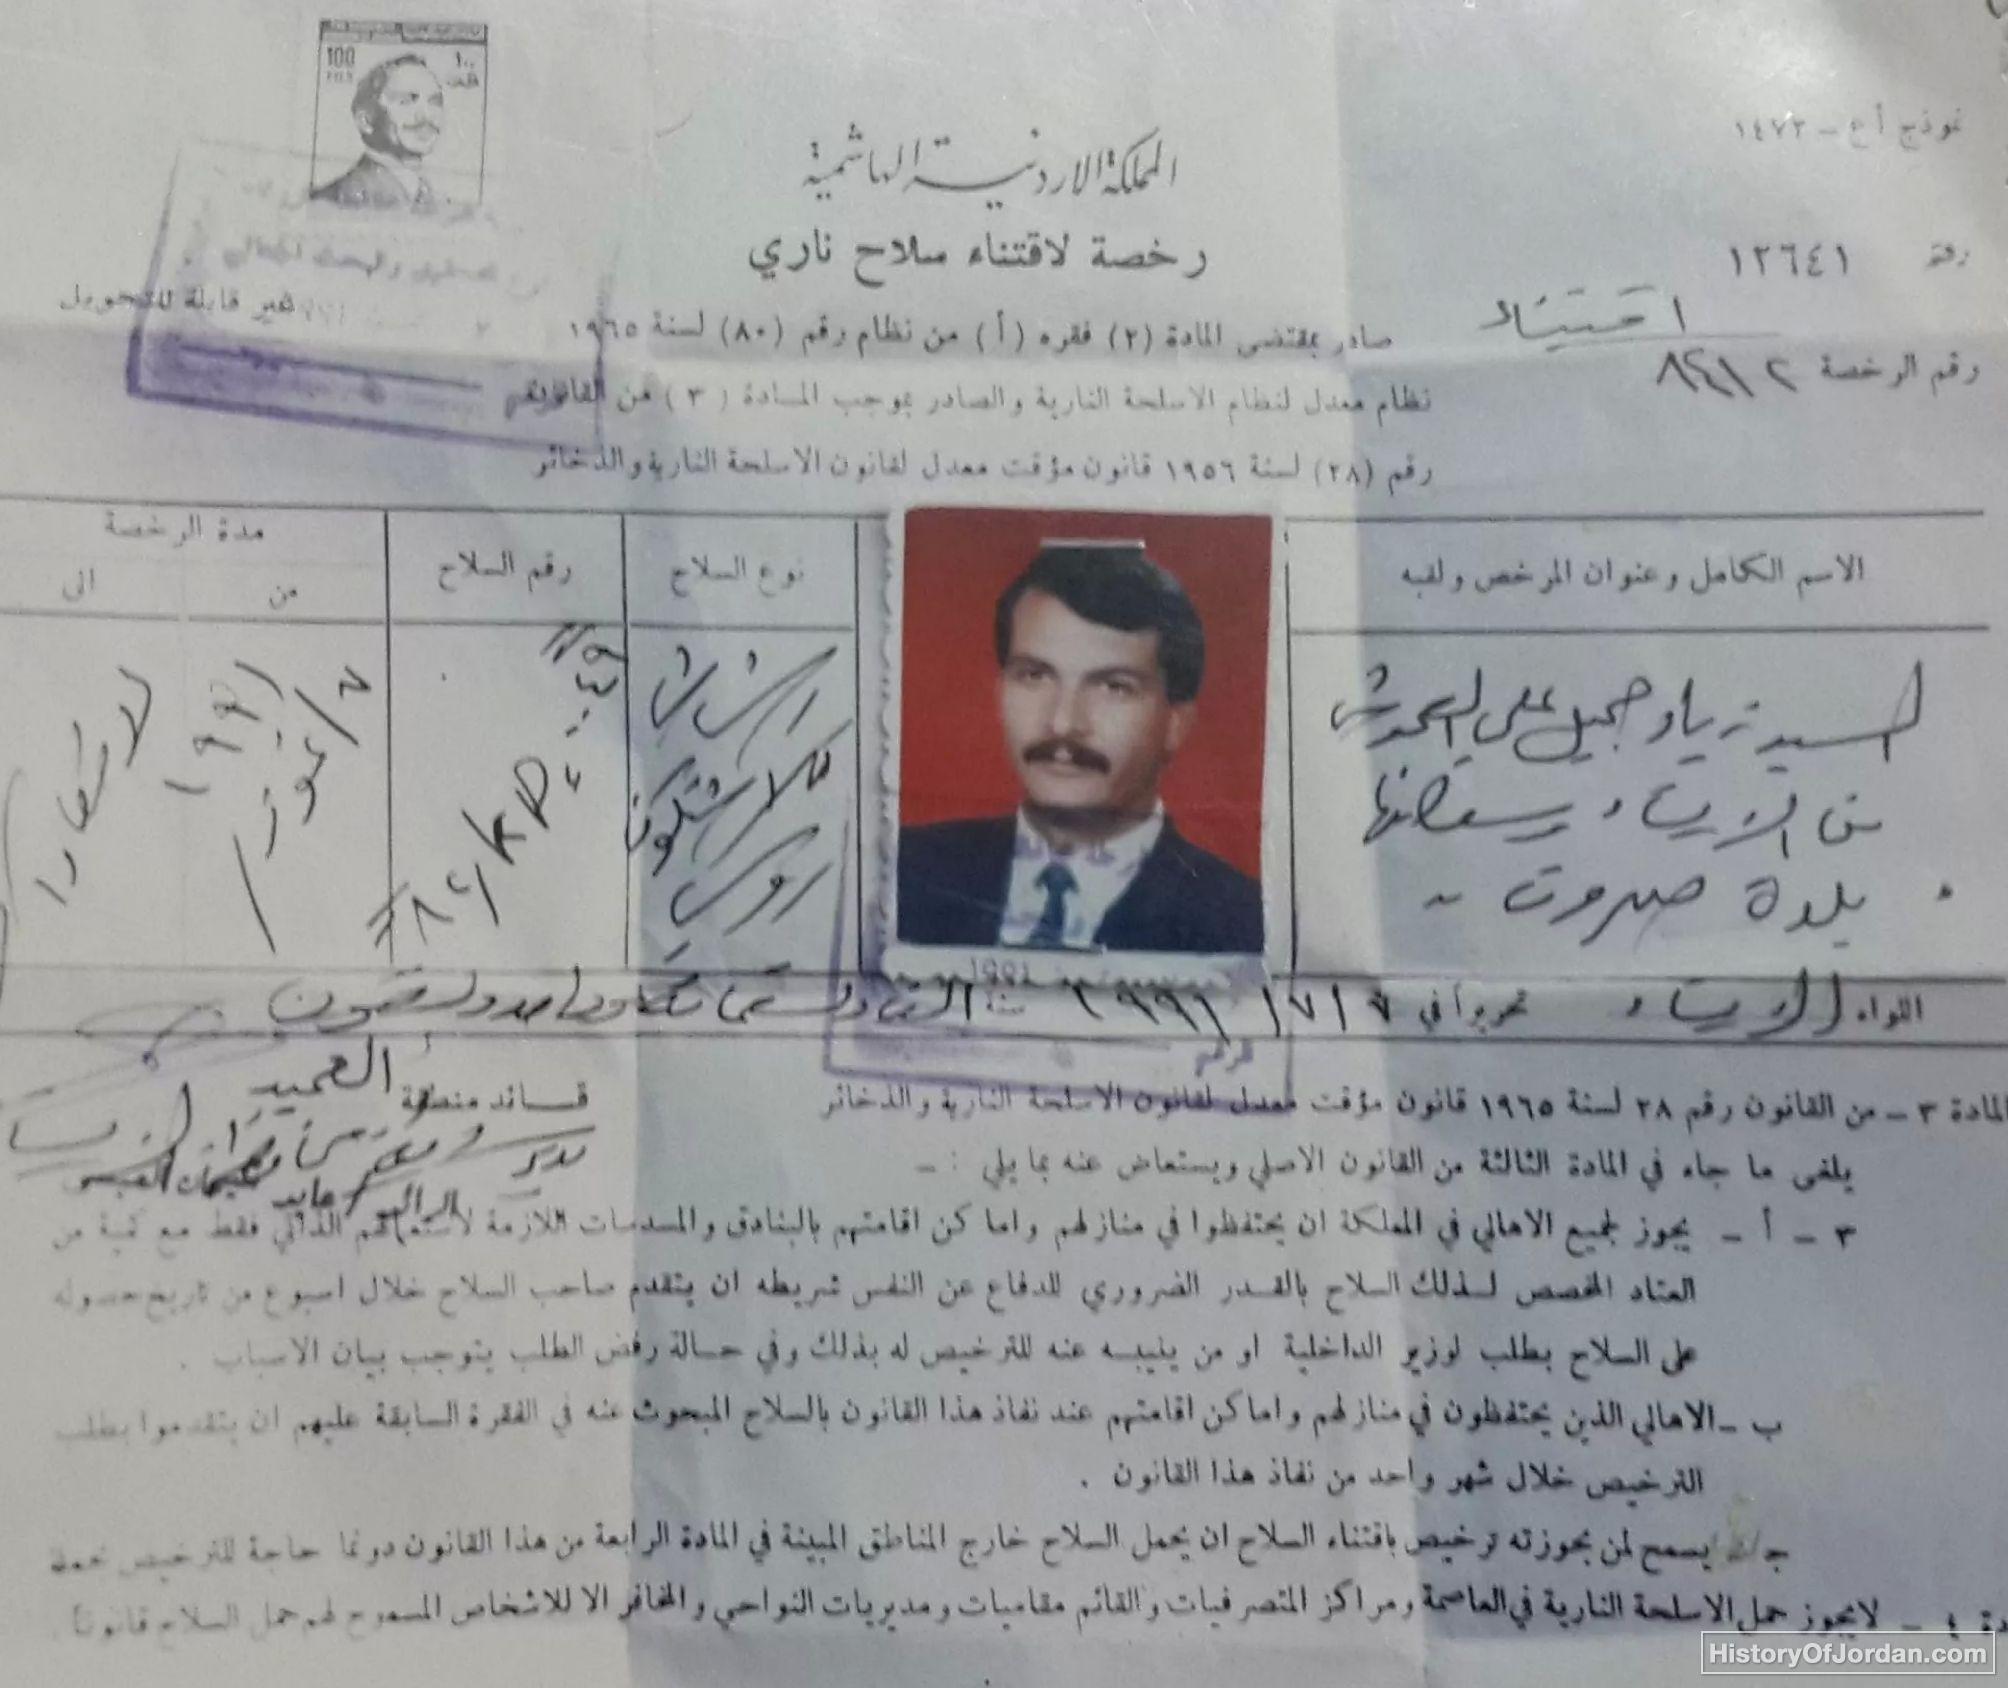 100
FILS
١٠٠
فلس
نموذج أ ع – ١٤٧٢
المملكة الاردنية الهاشمية
رخصة لاقتناء سلاح ناري
رقم ١٢٦٤١
اقتناء
غير قابلة للتحويل
صادر بمقتضى المادة (٢) فقره (أ) من نظام رقم (٨٠) لسنة ١٩٦٥
رقم الرخصة
نظام معدل لنظام الاسلحة النارية والصادر بموجب المادة (٣) من القانون
رقم (٢٨) لسنة ١٩٥٦ قانون مؤقت معدل لقانون الاسلحة النارية والذخائر
الاسم الكامل وعنوان المرخص ولقبه
نوع السلاح
رقم السلاح
مدة الرخصة
من
الى
السيد زياد جميل علي
من الزرقاء وسكانها
بلدة صروت
كلاشنكوف
روسي
٧/تموز/
١٩٩١
اللواء الزرقاء تحريراً في ١٩٩١/٧/٧
العميد
قائد منطقة
مدير
المادة ٣ – من القانون رقم ٢٨ لسنة ١٩٦٥ قانون مؤقت معدل لقانون الاسلحة النارية والذخائر
يلغى ما جاء في المادة الثالثة من القانون الاصلي ويستعاض عنه بما يلي : –
٣ – أ – يجوز لجميع الاهالي في المملكة ان يحتفظوا في منازلهم واماكن اقامتهم بالبنادق والمسدسات اللازمة لاستعمالهم الذاتي فقط مع كمية من
العتاد المخصص لذلك السلاح بالقدر الضروري للدفاع عن النفس شريطه ان يتقدم صاحب السلاح خلال اسبوع من تاريخ حصوله
على السلاح بطلب لوزير الداخلية او من ينيبه عنه للترخيص له بذلك وفي حالة رفض الطلب يتوجب بيان الاسباب .
ب – الاهالي الذين يحتفظون في منازلهم واماكن اقامتهم عند نفاذ هذا القانون بالسلاح المبحوث عنه في الفقرة السابقة عليهم ان يتقدموا بطلب
الترخيص خلال شهر واحد من نفاذ هذا القانون .
ج – يسمح لمن بحوزته ترخيص باقتناء السلاح ان يحمل السلاح خارج المناطق المبينة في المادة الرابعة من هذا القانون دونما حاجة للترخيص بحمله
دة ٤ – لا يجوز حمل الاسلحة النارية في العاصمة ومراكز المتصرفيات والقائم مقاميات ومديريات النواحي والمخافر الا للاشخاص المسموح لهم حمل السلاح قانوناً .
HistoryOfJordan.com